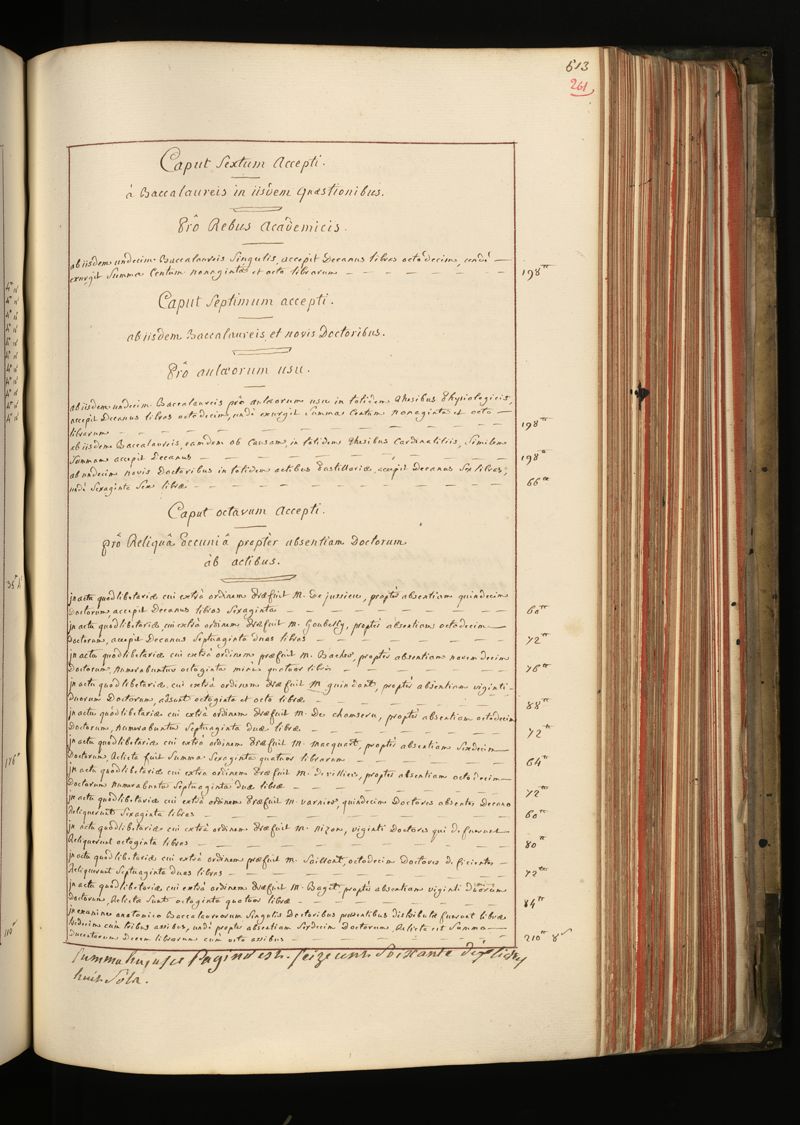 613
261
Caput Sextum Accepti.
à Baccalaureis in iisdem quæstionibus.
Prô Rebus Academicis.
ab iisdem undecim Baccalaureis Singulis, accepit Decanus libras octodecim, undè
exurgit Summa Centum nonaginta et octo librarum 198tt
Caput Septimum accepti.
ab iisdem Baccalaureis et novis Doctoribus.
Prô aulæorum usu.
ab iisdem undecim Baccalaureis prô aulæorum usu in totidem thesibus Physiologicis,
accepit Decanus libras octodecim, undè exurgit Summa Centum nonaginta et octo
librarum 198tt
ab iisdem Baccalaureis, eamdem ob Causam, in totidem thesibus Cardinalitiis, Similem
Summam accepit Decanus 198tt
ab undecim novis Doctoribus in totidem actibus Pastillariæ, accepit Decanus Sex libras,
undè Sexaginta Sex libræ 66tt
Caput octavum Accepti.
prô Reliquâ Pecuniâ proptèr absentiam Doctorum
àb actibus.
jn actu quodlibetariæ cui extrà ordinem Præfuit M. de jussieu, proptèr absentiam quindecim
Doctorum, accepit Decanus libras Sexaginta 60tt
jn actu quodlibetariæ cui extrà ordinem Præfuit M. Goubelly, proptèr absentiam octodecim
Doctorum, accepit Decanus Septuaginta duas libras 72tt
jn actu quodlibetariæ cui extrà ordinem, præfuit M. Bacher, proptèr absentiam novemdecim
Doctorum, numerabuntur octoginta minus quatuor libris 76tt
jn actu quodlibetariæ cui extrà ordinem Præfuit M guindant, proptèr absentiam viginti
Duorum Doctorum, adsunt octoginta et octo libræ 88tt
jn actu quodlibetariæ cui extrà ordinem Præfuit M. De chamseru, proptèr absentiam octodecim
Doctorum, numerabuntur Septuaginta duæ libræ 72tt
jn actu quodlibetariæ cui extrà ordinem Præfuit M. macquart, proptèr absentiam Sexdecim
Doctorum, Relicta fuit Summa Sexaginta quatuor librarum 64tt
jn actu quodlibetariæ cui extrà ordinem Præfuit M. devilliers, proptèr absentiam octodecim
Doctorum numerabuntur Septuaginta duæ libræ 72tt
jn actu quodlibetariæ cui extrà ordinem Præfuit M. varnier, quindecim Doctores absentes Decano
Reliquerunt Sexaginta libras 60tt
jn actu quodlibetariæ cui extrà ordinem Præfuit M. nizon, viginti Doctores qui defuerunt
Reliquerunt octoginta libras 80tt
jn actu quodlibetariæ cui extrà ordinem præfuit M. Saillant, octodecim Doctores deficientes
Reliquerunt Septuaginta duas libras 72tt
jn actu quodlibetariæ cui extrà ordinem Præfuit M. Baget, proptèr absentiam viginti Duorum
Doctorum, Relictæ Sunt octoginta quatuor libræ 84tt
jn examine anatomico Baccalaureorum Singulis Doctoribus præsentibus distributæ fuerunt libræ
tredecim cùm tribus assibus, undè proptèr absentiam Sexdecim Doctorum, Relicta est Summa
Ducentarum Decem librarum cùm octo assibus 210tt 8s
Summa hujusce Paginæ est. Seize cent Soixante dix livres
huit Sols.